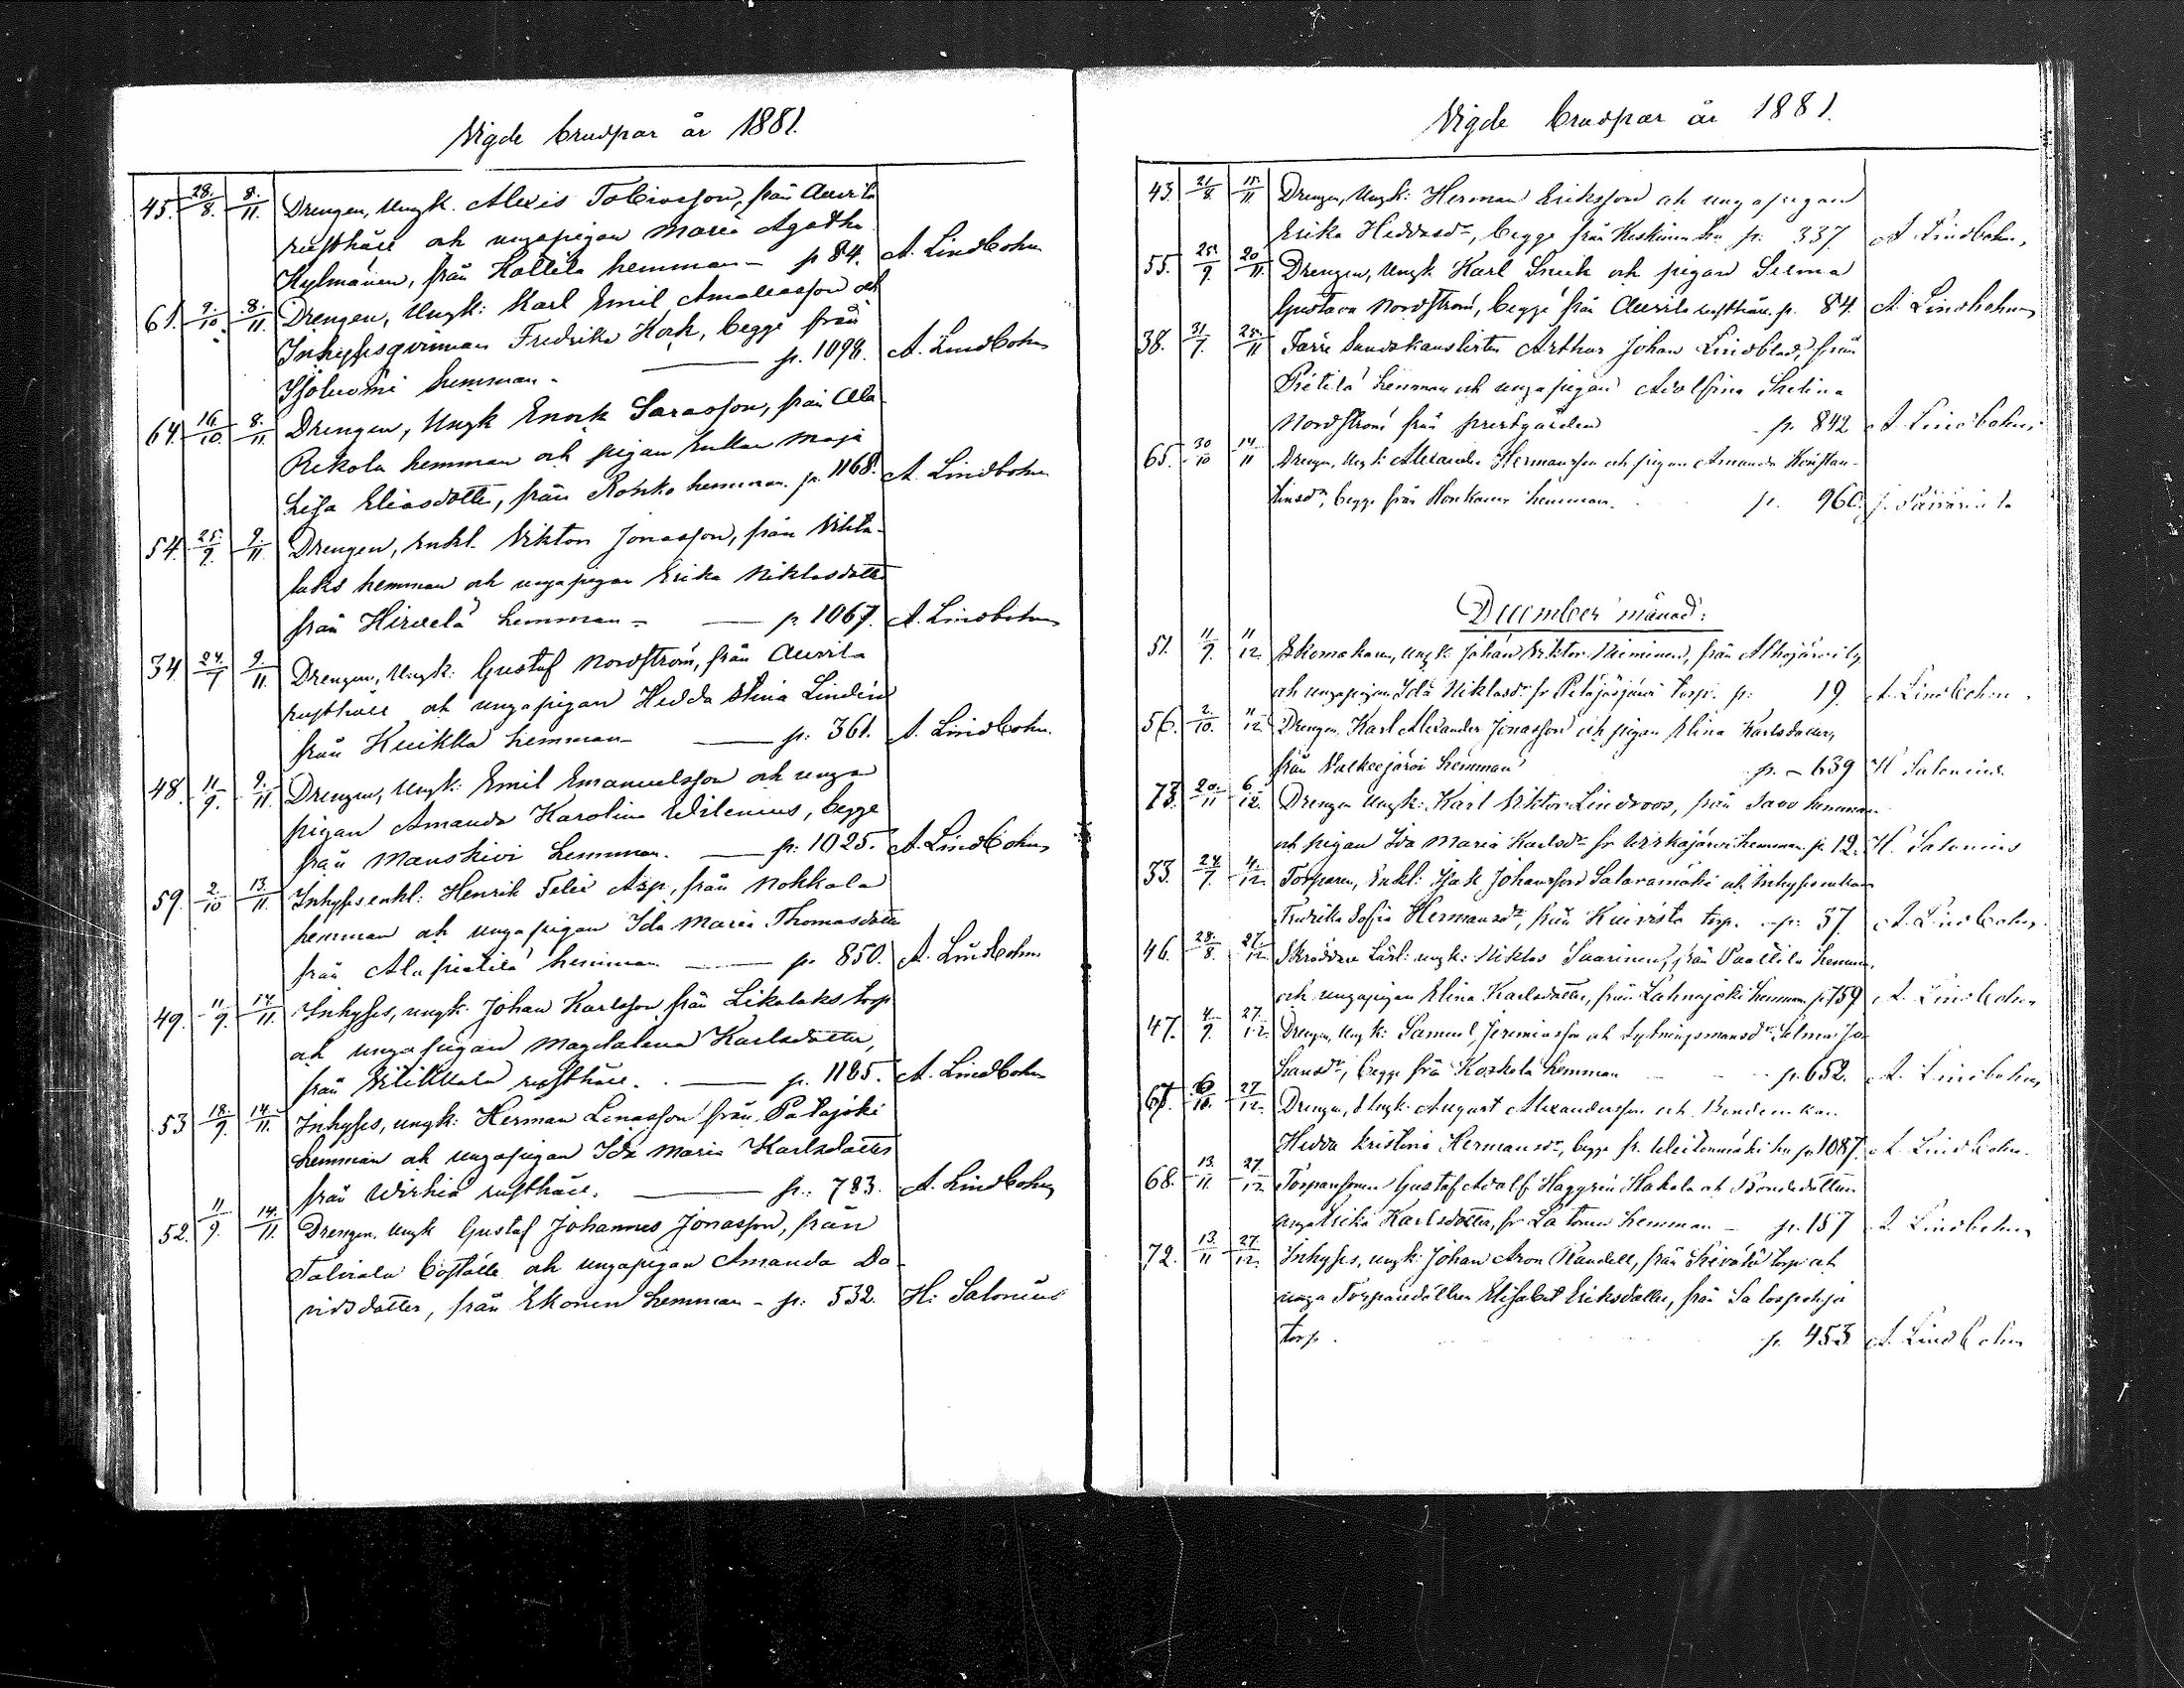 Vigde brudpar år 1881.
45. 28./8. 8./11. Drengen, Ungk. Alexis Tobiasson, från Aurila
rusthåll och ungapigan Maria Agatha
Kylmänen, från Kollila hemman - p 84. A. Lindbohm
61. 9./10 8./11. Drengen, Ungk: Karl Emil Amaliasson och
Inhysesqvinnan Fredrika Kork, begge från
Isoluomi hemman. p. 1098. A. Lindbohm
64. 16./10. 8./11. Drengen, Ungk Enock Sarasson, från Ala
Rekola hemman och pigan Enkan Maja
Lisa Eliasdotter, från Rohko hemman. p. 1168. A. Lindbohm
54. 25./9. 9./11. Drengen, Enkl. Viktor Jonasson, från
hemman och ungapigan Erika Niklasdotter
från Hirvelä hemman - p 1067. A. Lindbohm
34 24./7 9./11. Drengen, Ungk: Gustaf Nordström, från Aurila
rusthåll och ungapigan Hedda Stina Lindén
från Kuikka hemman p: 361. A. Lindbohm.
48. 11./9. 9./11. Drengen, Ungk: Emil Emanuelsson och unga
pigan Amanda Karolina Wilenius, begge
från Mauskivi hemman. p: 1025. A. Lindbohm
59. 2./10 13./11. Inhyses enkl: Henrik Felix Asp, från Nokkala
hemman och ungapigan Ida Maria Thomasdotter
från Alapietilä hemman p. 850. A. Lindbohm
49. 11./9. 14./11. Inhyses, ungk: Johan Karlsson från Likolaks torp
och ungapigan Magdalena Karlsdotter,
från Vilikkala rusthåll. p. 1185. A. Lindbohm
53 18./9. 14./11. Inhyses, ungk: Herman Lenasson från Patajoki
hemman och ungapigan Ida Maria Karlsdotter
från Wirkiä rusthåll. p.: 783. A. Lindbohm
52. 11/9. 14./11. Drengen, Ungk Gustaf Johannes Jonasson, från
Talviala boställe och ungapigan Amanda Da-
vidsdotter, från Ekonen hemman - p: 532. H: Salonius
Vigde brudpar år 1881.
43. 21/8. 15./11 Drengen, Ungk: Herman Eriksson och ungapigan
Erika Heddasdr, begge från Keskinen hn p: 337 A Lindbohm,
55. 25./9. 20/11. Drengen, Ungk Karl Snick och pigan Selma
Gustava Nordström, begge från Aurila rusthåll. p. 84. A. Lindbohm
38. 31/7. 25./11 Färre Landskanslisten Arthur Johan Lindblad, från
Pietilä hemman och ungapigan Adolfina Helina
Nordström från prestgården p. 842 A Lindbohm,
65. 30/10 14/11 Drengen, Ungk: Alexander Hermansson och pigan Amanda Konstan-
tinsdr, begge från Honkanen hemman. p. 960.
December månad:
51. 11/9. 11/12 Skomakaren, ungk: Johan Viktor Nieminen, från
och ungapigan Ida Niklasdr fr Petäjäsjärvi torp. p: 19 A. Lindbohm.
56. 2./10. 11/12 Drengen Karl Alexander Jonasson och pigan Elina Karlsdotter,
från Valkeejärvi hemman p. - 639 H Salonius.
73. 20./11 6/12. Drengen Ungk: Karl Viktor Lindroos, från Savo hemman
och pigan Ida Maria Karlsdr fr Wirkajärvi hemman p 12. H. Salonius
33. 24./7. 4./12. Torparen, Enkl: Isak Johansson Salavamäki och Inhysesenkan
Fredrika Sofia Hermansdr, från Kuivisto torp. p: 37 A. Lindbohm.
46. 28./8. 27./12 Skräddare Lärl: ungk: Niklas Saarinen, från Paattila hemman,
och ungapigan Elina Karlsdotter, från Lahnajoki hemman p. 759 A. Lindbohm
47. 4/9. 27./12. Drengen, Ungk: Samuel Jeremiasson och Lytningsmansdr Selma Jo-
hansdr, begge från Koskela hemman p. 652. A. Lindbohm,
67. 6/10. 27/12. Drengen, Ungk: August Alexandersson och Bondenkan
Hedda Kristina Hermansdr, begge fr. Weitenmäki hn p. 1087. A. Lindbohm.
68. 13./11 27./12. Torparsonen Gustaf Adolf Haggrén Hakala och Bondedottern
unga Erika Karlsdotter, fr Latonen hemman - p. 157 A Lindbohm
72. 13./11 27./12. Inhyses, ungk: Johan Aron Randell, från torp och
unga Torparedottren Elisabet Eriksdotter, från Salospohja
torp. p. 453 A. Lindbohm